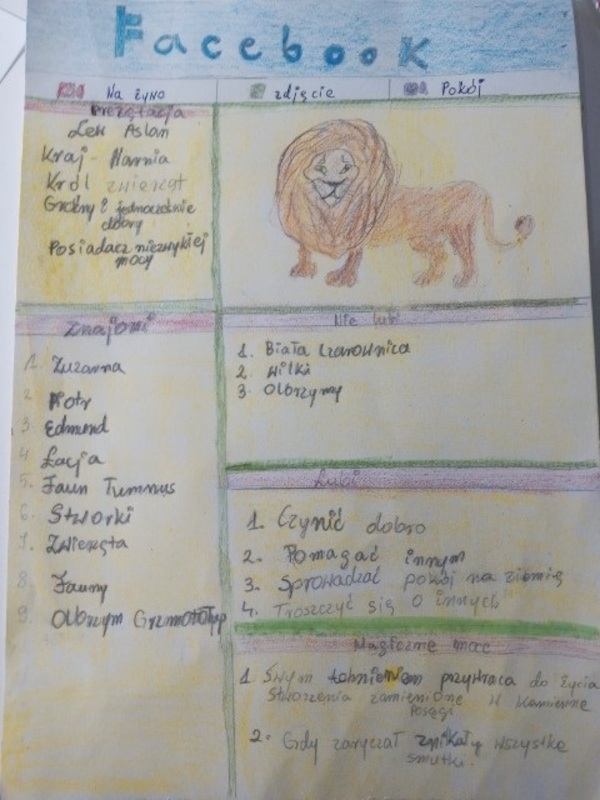 Facebook
Na żyno
zdjęcie
Pokój
Prezętacja
Lew Aslan
Kraj - Narnia
Król zwierząt
Groźny i jednocześnie
dobry
Posiadacz niezwykłej
mocy
Znajomi
1. Zuzanna
2. Piotr
3. Edmund
4. Łacja
5. Faun Tumnus
6. Stworki
7. Zwierzęta
8. Fauny
9. Olbrzym Grzmotołup
Nie lubi
1. Biała Czarownica
2. Wilki
3. Olbrzymy
Lubi
1. Czynić dobro
2. Pomagać innym
3. Sprowadzać pokój na ziemię
4. Troszczyć się o innych
Magiczne moce
1. Swym tchnieniem przywraca do życia
Stworzenia zamienione w kamienne
posągi
2. Gdy zaryczał znikały wszystkie
smutki.